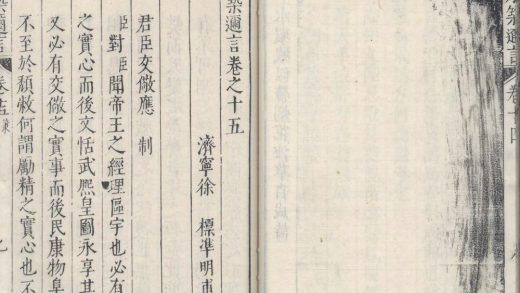 築邇言 卷十四
築邇言卷之十五
濟寧徐 標準明甫
君臣交儆應 制
臣對臣聞帝王之經理區宇也必有
之實心而後文恬武熙皇圖永享其
又必有交儆之實事而後民康物阜
不至於頹敝何謂勵精之實心也不
築邇言 卷十五 策